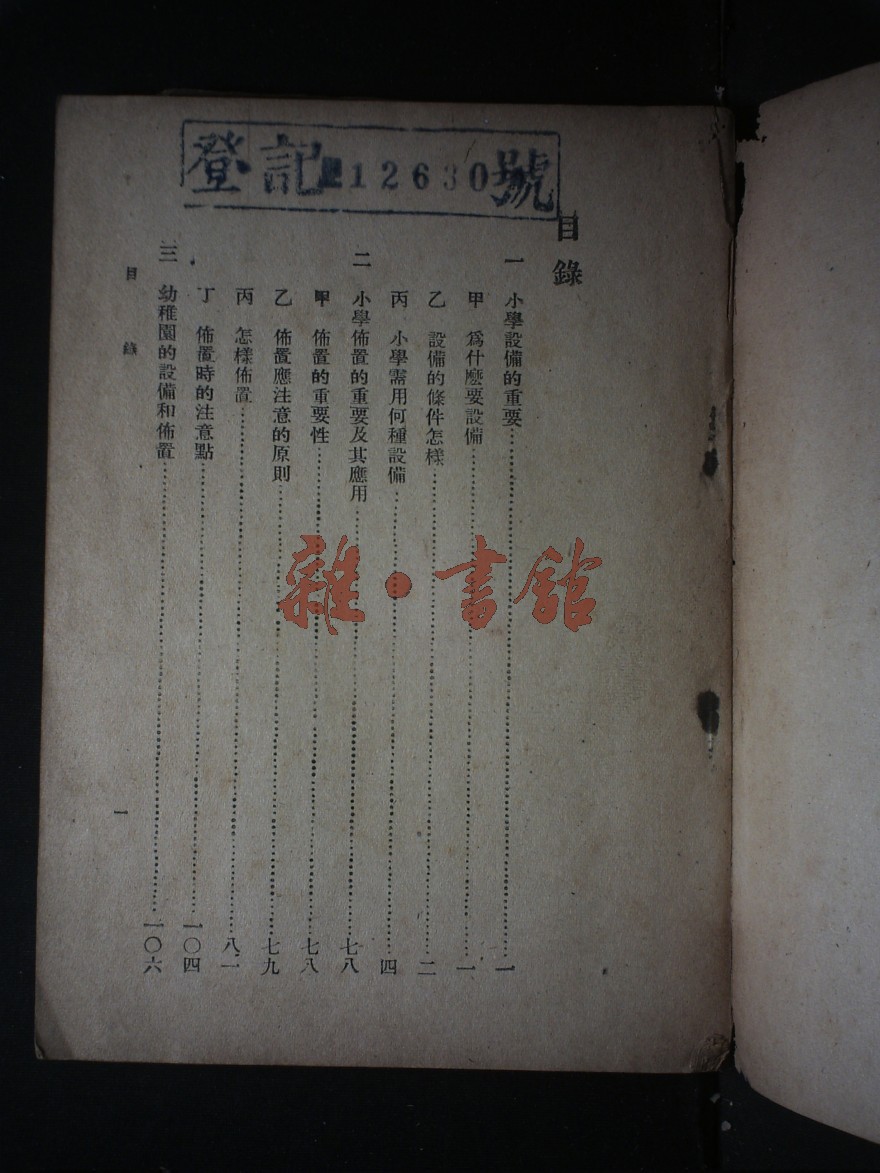 登記212630號
目錄
一 小學設備的重要……一
甲 爲什麼要設備……一
乙 設備的條件怎樣……二
丙 小學需用何種設備……四
二 小學佈置的重要及其應用……七八
甲 佈置的重要性……七八
乙 佈置應注意的原則……七九
丙 怎樣佈置……八一
丁 佈置時的注意點……一〇四
三 幼稚園的設備和佈置……一〇六
目錄
一
雜·書館